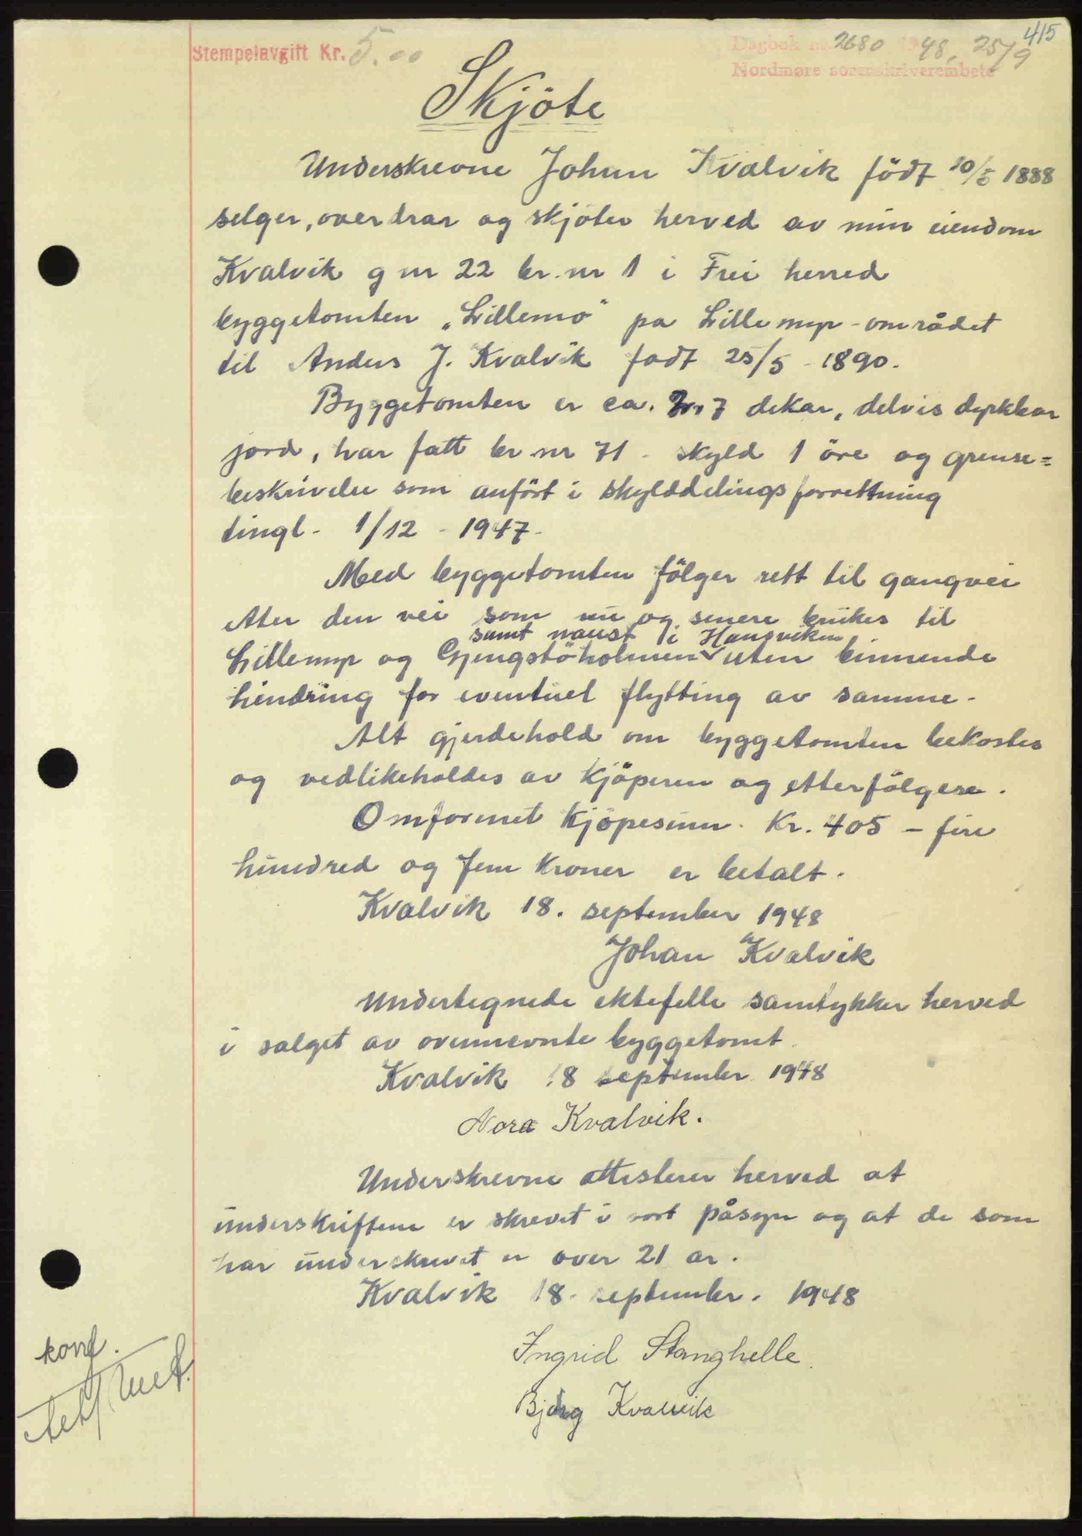 415
Stempelavgift Kr. 5.00
Dagbok nr. 2680 1948, 25/9
Nordmøre sorenskriverembete
Skjöte
Underskrevne Johan Kvalvik födt 10/5 1888
selger, overdrar og skjöter herved av min eiendom
Kvalvik g nr 22 br. nr 1 i Frei herred
byggetomten "Lillemo" pa Lillemyr-området
til Anders J. Kvalvik fodt 25/5 - 1890.
Byggetomten er ca. 7 dekar, delvis dyrkbar
jord, har fatt br nr 71 - skyld 1 öre og grense=
beskrivelse som anfört i skylddelingsforrettning
tingl. 1/12 - 1947.
Med byggetomten fölger rett til gangvei
etter den vei som nu og senere brukes til
samt naust i Hansviken
Lillemyr og Gjengstöholmen uten binnende
hindring for eventuel flytting av samme.
Alt gjerdehold om byggetomten bekostes
og vedlikeholdes av kjöperen og etterfölgere.
Omforenet kjöpesum Kr. 405 - fire
hundred og fem kroner er betalt.
Kvalvik 18. september 1948
Johan Kvalvik
Undertegnede ektefelle samtykker herved
i salget av ovennevnte byggetomt.
Kvalvik 18 september 1948
Nora Kvalvik.
Underskrevne attesterer herved at
underskriftene er skrevet i vort påsyn og at de som
har underskrevet er over 21 ar.
Kvalvik 18. september. 1948
Ingrid Stanghelle.
Bjørg Kvalvik
konf.